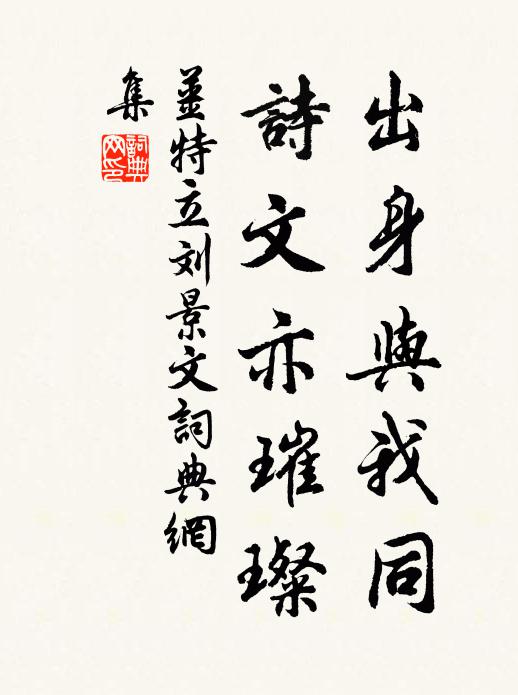 出身與我同
詩文亦璀璨
姜特立刘景文詞典網
集
詞典网印